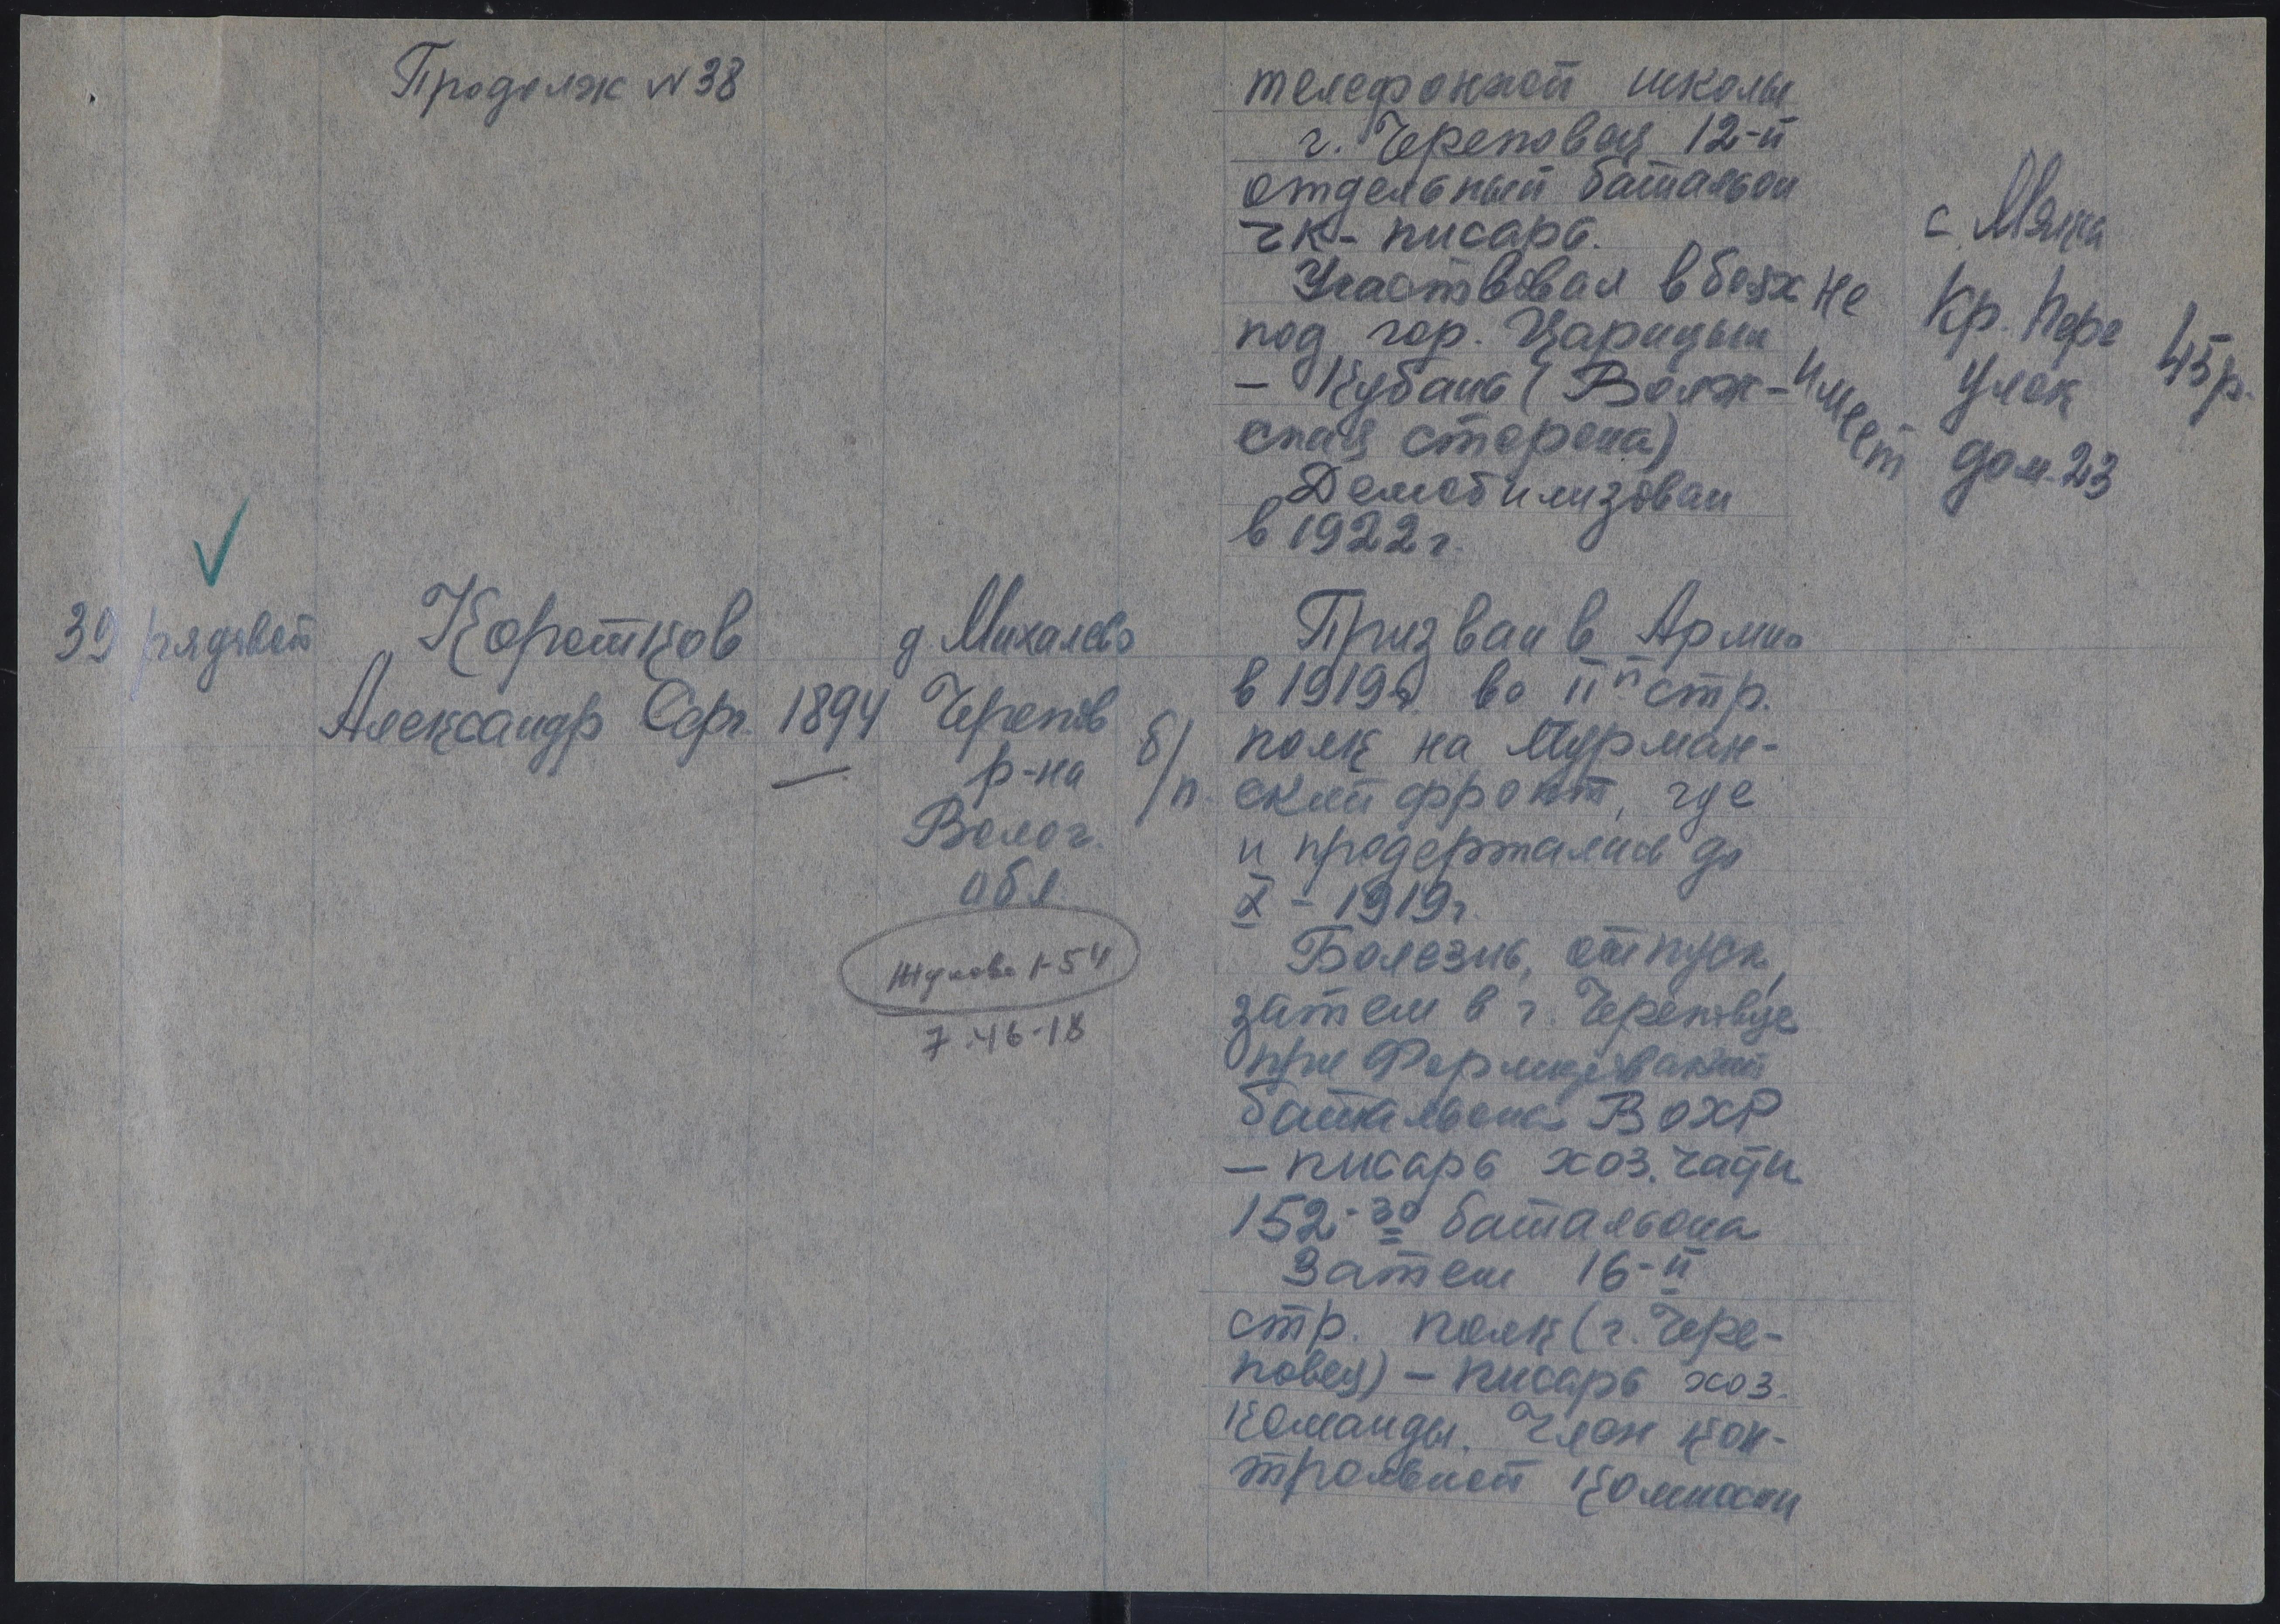 Продолж N 38
телефонной школы
г. Череповец 12-й
отдельный батальон
ЧК - писарь.
Участвовал в боях
под гор. Царицын
- Кубань (Волж-
ская сторона)
Демобилизован
в 1922 г.
не
имеет
с. Мякса
Кр. Пере
улок
дом 23
45р.
39 рядовой
Коротков
Александр Серг.
1894
д Михалево
Черепов
р-на
Волог.
обл
Жукова 1-54
7-46-18
б/п
Призван в Армию
в 1919г во II й стр.
полк на Мурман-
ский фронт, где
и продержались до
X - 1919г
Болезнь, отпуск,
затем в г. Череповце
при Формировании
батальона ВОХР
- писарь хоз. части
152-го батальона
Затем 16-й
стр. полк (г. Чере-
повец) - писарь хоз.
команды. Член кон-
трольной комиссии